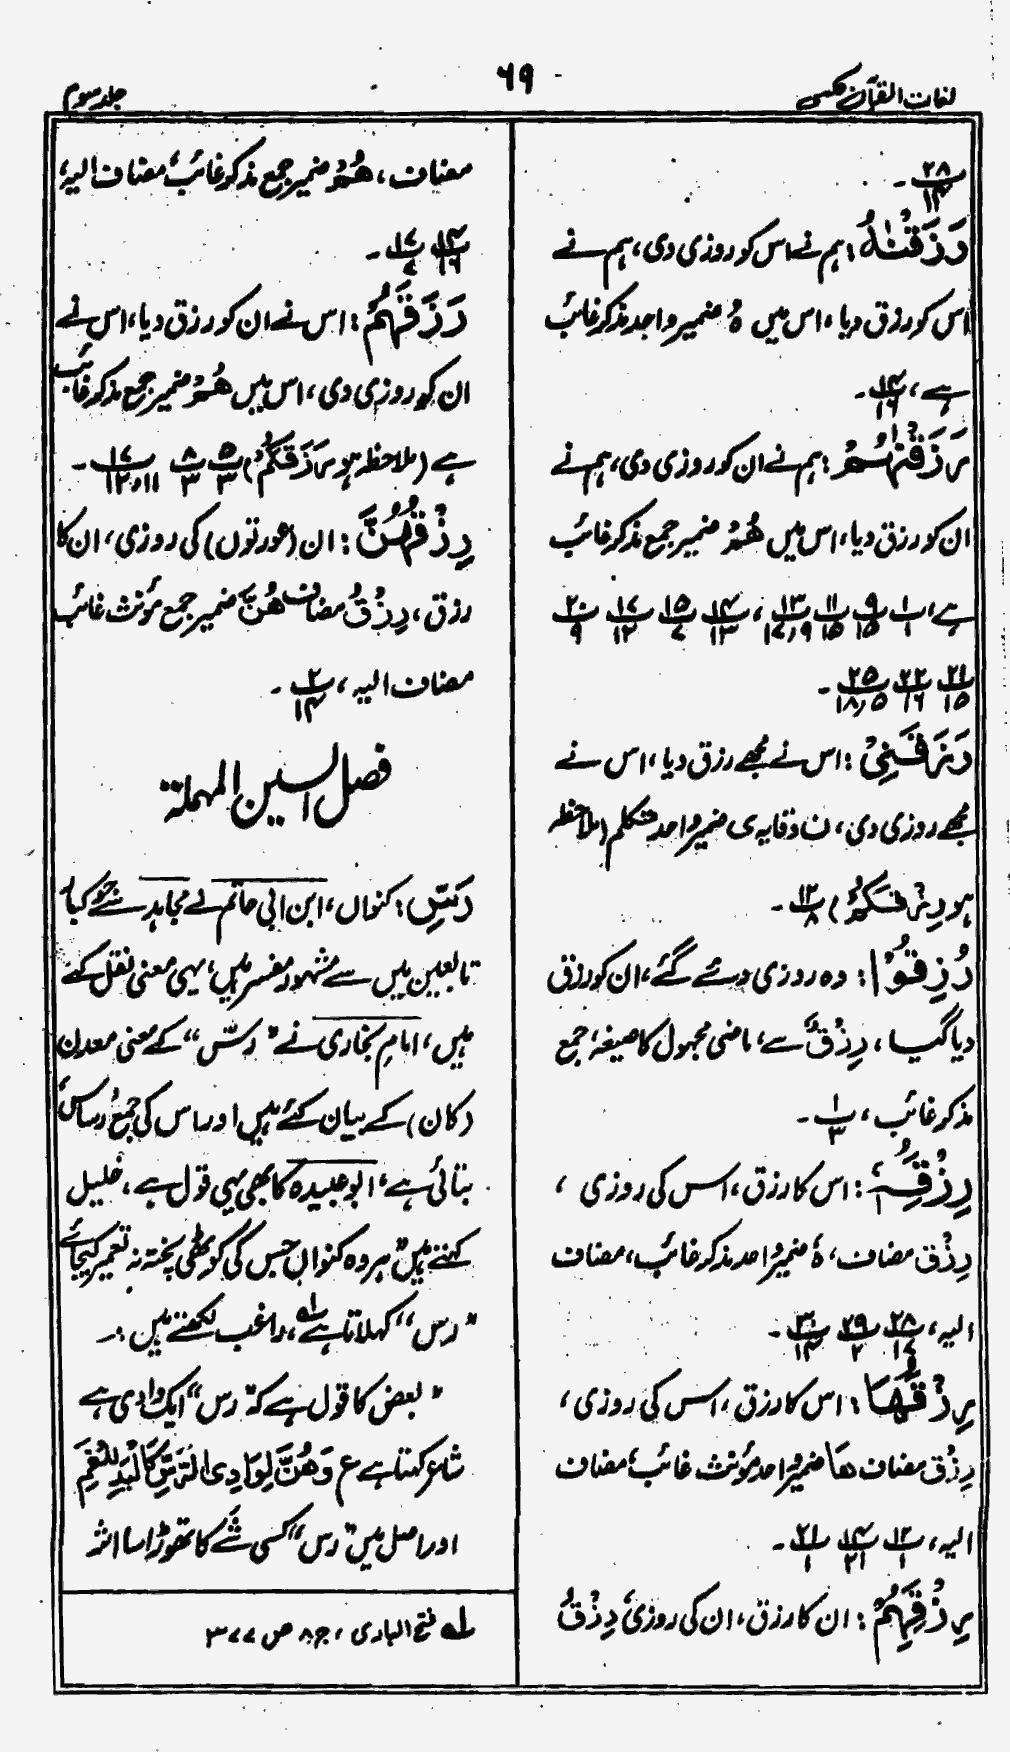 لغات القرآن مکسی
۶۹
جلد سوم
۲۸/۱۴ ۔
رَزَقْنٰهُ : ہم نے اس کو روزی دی، ہم نے
اس کو رزق دیا، اس میں ہٗ ضمیر واحد مذکر غائب
ہے، ۱۴/۱۶ ۔
رَزَقْنٰهُمْ : ہم نے ان کو روزی دی، ہم نے
ان کو رزق دیا، اس میں هُمْ ضمیر جمع مذکر غائب
ہے، ۱/۱ ۹/۱۵ ۱۱/۱۵ ۱۳/۱۷،۹ ، ۱۴/۱۳ ۱۵/۷ ۱۷/۱۲ ۲۰/۹
۲۱/۱۵ ۲۲/۱۶ ۲۵/۱۸،۵ ۔
رَزَقَنِيْ : اس نے مجھے رزق دیا، اس نے
مجھے روزی دی، ن وقایہ ی ضمیر واحد متکلم (ملاحظہ
ہو رِزْقُكُمْ) ۱۲/۸ ۔
رُزِقُوْا : وہ روزی دئے گئے، ان کو رزق
دیا گیا، رِزْقٌ سے، ماضی مجہول کا صیغہ، جمع
مذکر غائب، ۱/۳ ۔
رِزْقِهٖ : اس کا رزق، اس کی روزی ،
رِزْق مضاف، ہٗ ضمیر واحد مذکر غائب، مضاف
الیہ، ۲۸/۱۷ ۲۹/۲ ۳۰/۱۴ ۔
رِزْقُهَا : اس کا رزق، اس کی روزی ،
رِزْق مضاف ھا ضمیر واحد مؤنث غائب، مضاف
الیہ، ۱۲/۱ ۱۴/۲۱ ۲۱/۱ ۔
رِزْقِهِمْ : ان کا رزق، ان کی روزی رِزْقُ
مضاف، هُمْ ضمیر جمع مذکر غائب، مضاف الیہ،
۱۴/۱۶ ۱۷/۷ ۔
رَزَقَهُمْ : اس نے ان کو رزق دیا، اس نے
ان کو روزی دی، اس میں هُمْ ضمیر جمع مذکر غائب
ہے (ملاحظہ ہو رَزَقَكُمْ) ۵/۳ ۸/۳ ۱۷/۱۲،۱۱ ۔
رِزْقُهُنَّ : ان (عورتوں) کی روزی، ان کا
رزق، رِزْقُ مضاف هُنَّ ضمیر جمع مؤنث غائب
مضاف الیہ، ۲/۱۴ ۔
فصل السین المہملة
رَسّ : کنواں، ابن ابی حاتم نے مجاہد سے جو کبار
تابعین میں سے مشہور مفسر ہیں، یہی معنی نقل کئے
ہیں، امام بخاری نے "رسّ" کے معنی معدن
(کان) کے بیان کئے ہیں اور اس کی جمع رساس
بتائی ہے، ابو عبیدہ کا بھی یہی قول ہے، خلیل
کہتے ہیں ہر وہ کنواں جس کی کوٹھی پختہ نہ تعمیر کیجائے
"رس" کہلاتا ہے لہ، راغب لکھتے ہیں :۔
"بعض کا قول ہے کہ "رس" ایک وادی ہے
شاعر کہتا ہے ع وَهُنَّ لِوَادِی الرَّسِّ كَالْيَدِ لِلْفَمِ
اور اصل میں "رس" کسی شَے کا تھوڑا سا اثر
لہ فتح الباری، ج ۸ ص ۳۷۷